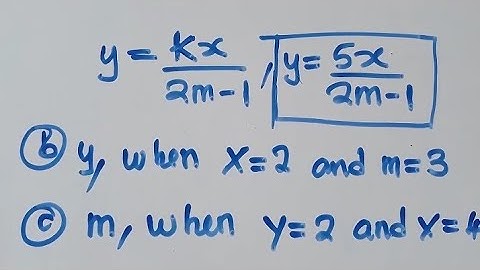 y = kx / 2m-1 , y = 5x / 2m-1
(b) y, when x=2 and m=3
(c) m, when y=2 and x=4